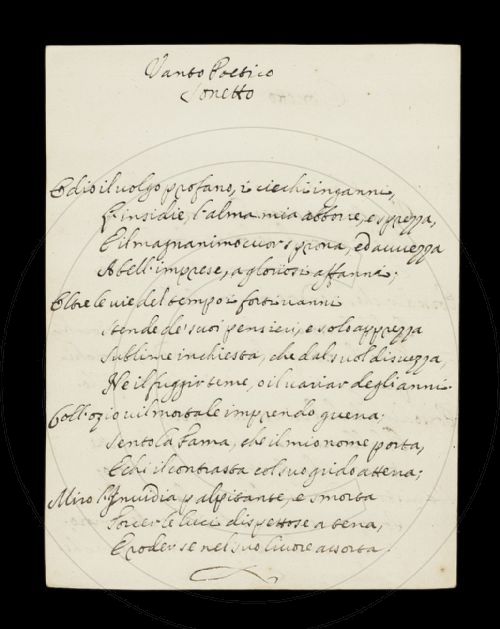 Vanto Poetico
Sonetto
Odio il volgo profano, i ciechi inganni,
L'insidie, l'alma mia abborre, e sprezza,
E il magnanimo cuor sprona, ed avvezza
A bell'imprese, a gloriosi affanni;
Oltre le vie del tempo i forti vanni
Stende de' suoi pensieri, e solo apprezza
Sublime inchiesta, che dal suol disvezza,
Ne il fuggir teme, o il variar degli anni.
Coll'ozio vil mortale imprendo guerra.
Sento la Fama, che il mio nome porta,
E chi il contrasta col suo grido atterra;
Miro l'Invidia palpitante, e smorta
Torcer le luci dispettose a terra,
E roder se nel suo livore assorta.